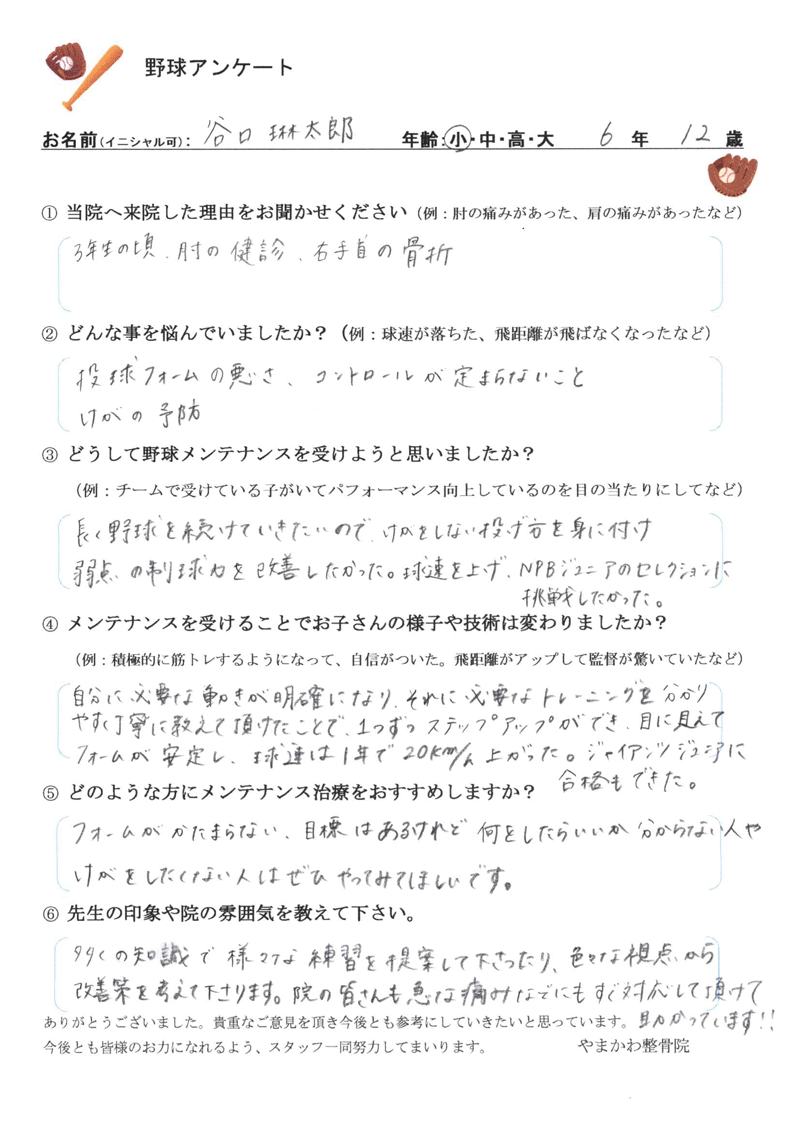 野球アンケート
お名前(イニシャル可): 谷口 琳太郎 年齢:小・中・高・大 6 年 12 歳
① 当院へ来院した理由をお聞かせください（例：肘の痛みがあった、肩の痛みがあったなど）
3年生の頃、肘の健診、右手首の骨折
② どんな事を悩んでいましたか？（例：球速が落ちた、飛距離が飛ばなくなったなど）
投球フォームの悪さ、コントロールが定まらないこと
けがの予防
③ どうして野球メンテナンスを受けようと思いましたか？
（例：チームで受けている子がいてパフォーマンス向上しているのを目の当たりにしてなど）
長く野球を続けていきたいので、けがをしない投げ方を身に付け
弱点の制球力を改善したかった。球速を上げ、NPBジュニアのセレクションに
挑戦したかった。
④ メンテナンスを受けることでお子さんの様子や技術は変わりましたか？
（例：積極的に筋トレするようになって、自信がついた。飛距離がアップして監督が驚いていたなど）
自分に必要な動きが明確になり、それに必要なトレーニングを分かり
やすく丁寧に教えて頂けたことで、1つずつステップアップができ、目に見えて
フォームが安定し、球速は1年で20km/h上がった。ジャイアンツジュニアに
合格もできた。
⑤ どのような方にメンテナンス治療をおすすめしますか？
フォームがかたまらない、目標はあるけれど何をしたらいいか分からない人や
けがをしたくない人はぜひやってみてほしいです。
⑥ 先生の印象や院の雰囲気を教えて下さい。
多くの知識で様々な練習を提案して下さったり、色々な視点から
改善策を考えて下さります。院の皆さんも急な痛みなどにもすぐ対応して頂けて
助かっています!!
ありがとうございました。貴重なご意見を頂き今後とも参考にしていきたいと思っています。
今後とも皆様のお力になれるよう、スタッフ一同努力してまいります。 やまかわ整骨院